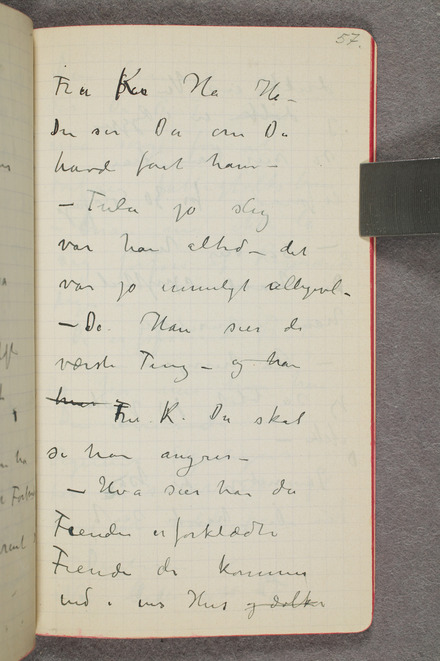 57.
Fru K Ha Ha –
Du ser Du om Du
havde faat ham –
– Fula jo slig
var han altid – det
var jo umuligt alligevel –
– De. Han sier de
værste Ting – og han
Fru K. Du skal
se han angrer –
– Hva sier han du
Fiender er forklædte
Fiender de kommer
ind i vor Hus